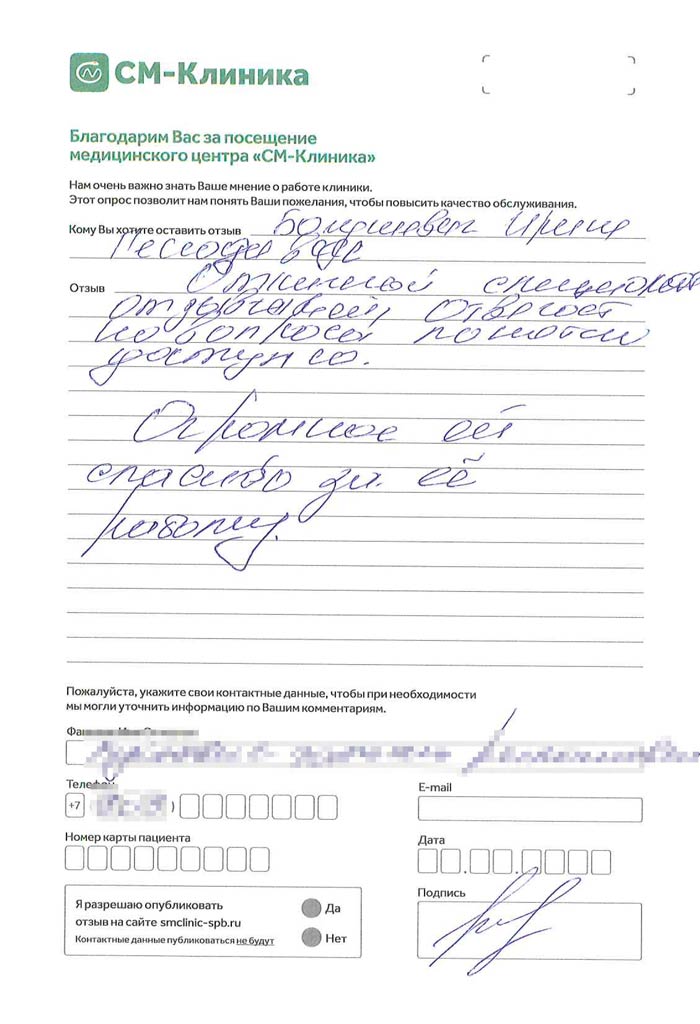 СМ-Клиника
Благодарим Вас за посещение
медицинского центра «СМ-Клиника»
Нам очень важно знать Ваше мнение о работе клиники.
Этот опрос позволит нам понять Ваши пожелания, чтобы повысить качество обслуживания.
Кому Вы хотите оставить отзыв
Отзыв Отличный
отзывчивый, отвечает
на вопросы понятно
доступно.
Огромное ей
спасибо за её
работу.
Пожалуйста, укажите свои контактные данные, чтобы при необходимости
мы могли уточнить информацию по Вашим комментариям.
Телефон
E-mail
+7 ( )
Номер карты пациента
Дата
Подпись
Я разрешаю опубликовать
отзыв на сайте smclinic-spb.ru
Контактные данные публиковаться не будут
Да
Нет